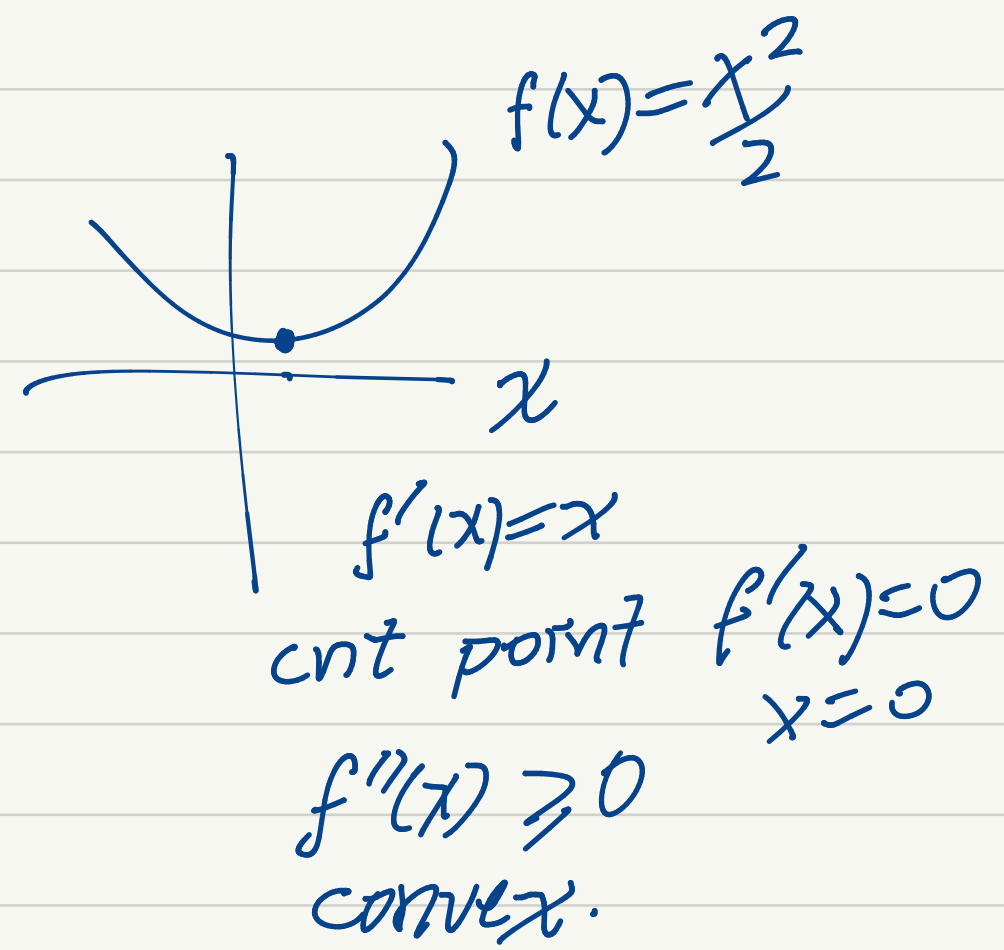 f(x)=x²/2
x
f'(x)=x
crit point f'(x)=0
x=0
f''(x)⩾0
convex.